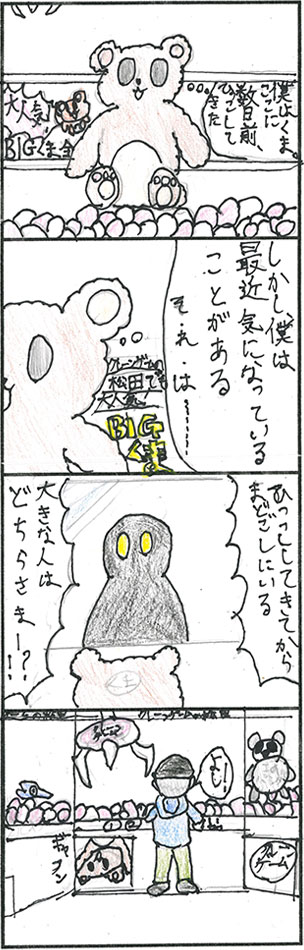 僕はくま。
ここに
数日前、
ひっこして
きた
大人気
BIGくま
しかし、僕は
最近気になっている
ことがある
それは……
クレーンゲームの
松田で
大人気!
BIG
くま
ひっこしてきてから
まどごしにいる
大きな人は
どちらさまー!?
よし!
クレーン
ゲーム
ギャフン